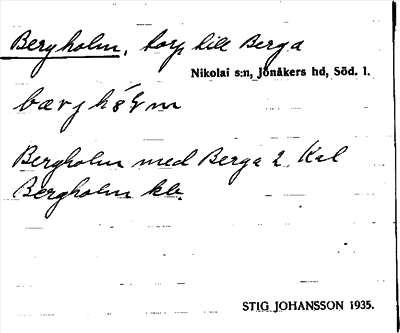 Bergholm, torp till Berga
Nikolai s:n, Jönåkers hd, Söd. l.
Bergholm med Berga 2 Kal
Bergholm kle.
STIG JOHANSSON 1935.